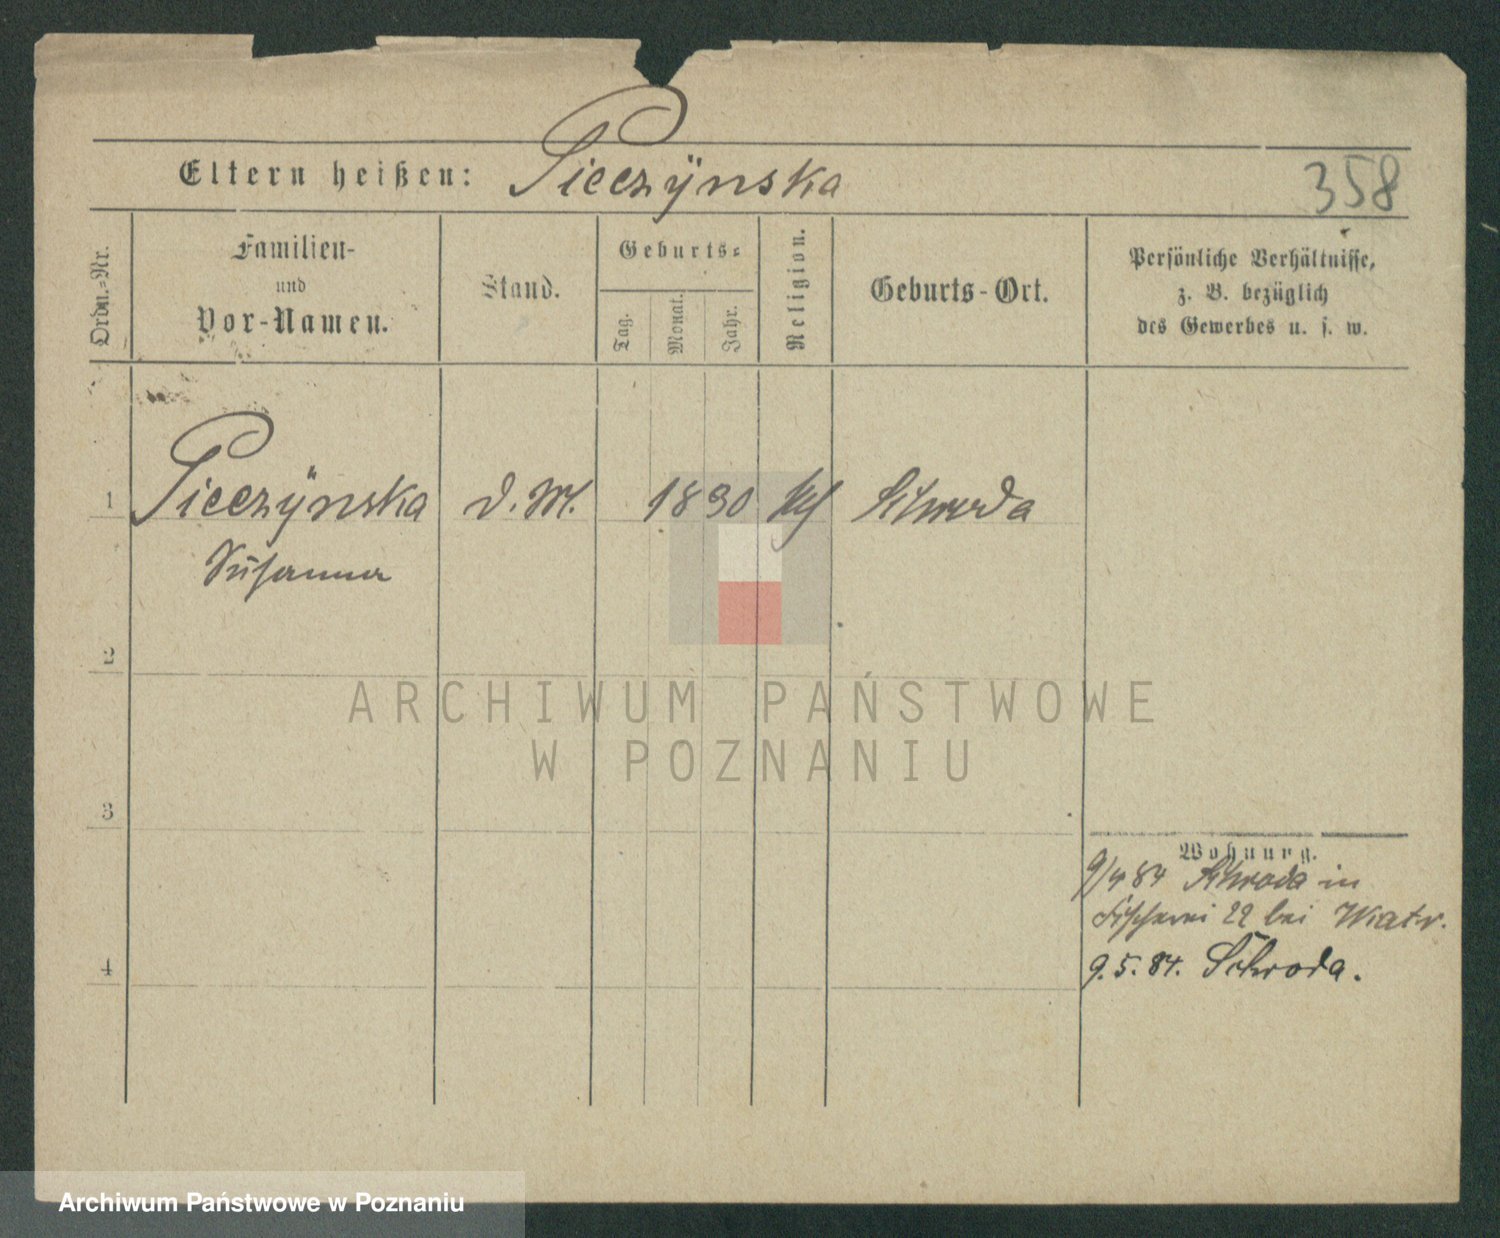 Eltern heißen: Pieczÿnska
358
Ordn.-Nr.
Familien-
und
Vor-Namen.
Stand.
Geburts-
Tag.
Monat.
Jahr.
Religion.
Geburts-Ort.
Persönliche Verhältnisse,
z. B. bezüglich
des Gewerbes u. s. w.
1 Pieczÿnska d. M. 1830 Schroda
Susanna
2
3
4
Wohnung.
9/4 84 Schroda in
Fischerei 22 bei Wiatr.
9. 5. 84. Schroda.
ARCHIWUM PAŃSTWOWE
W POZNANIU
Archiwum Państwowe w Poznaniu